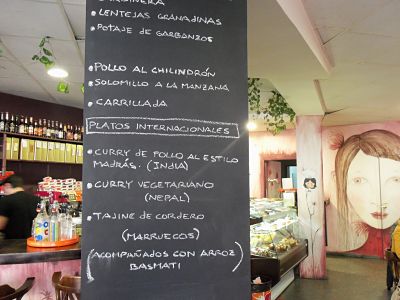 • LENTEJAS GRANADINAS
• POTAJE DE GARBANZOS
• POLLO AL CHILINDRÓN
• SOLOMILLO A LA MANZANA
• CARRILLADA
PLATOS INTERNACIONALES
• CURRY DE POLLO AL ESTILO
MADRÁS. (INDIA)
• CURRY VEGETARIANO
(NEPAL)
• TAJINE DE CORDERO
(MARRUECOS)
(ACOMPAÑADOS CON ARROZ
BASMATI)